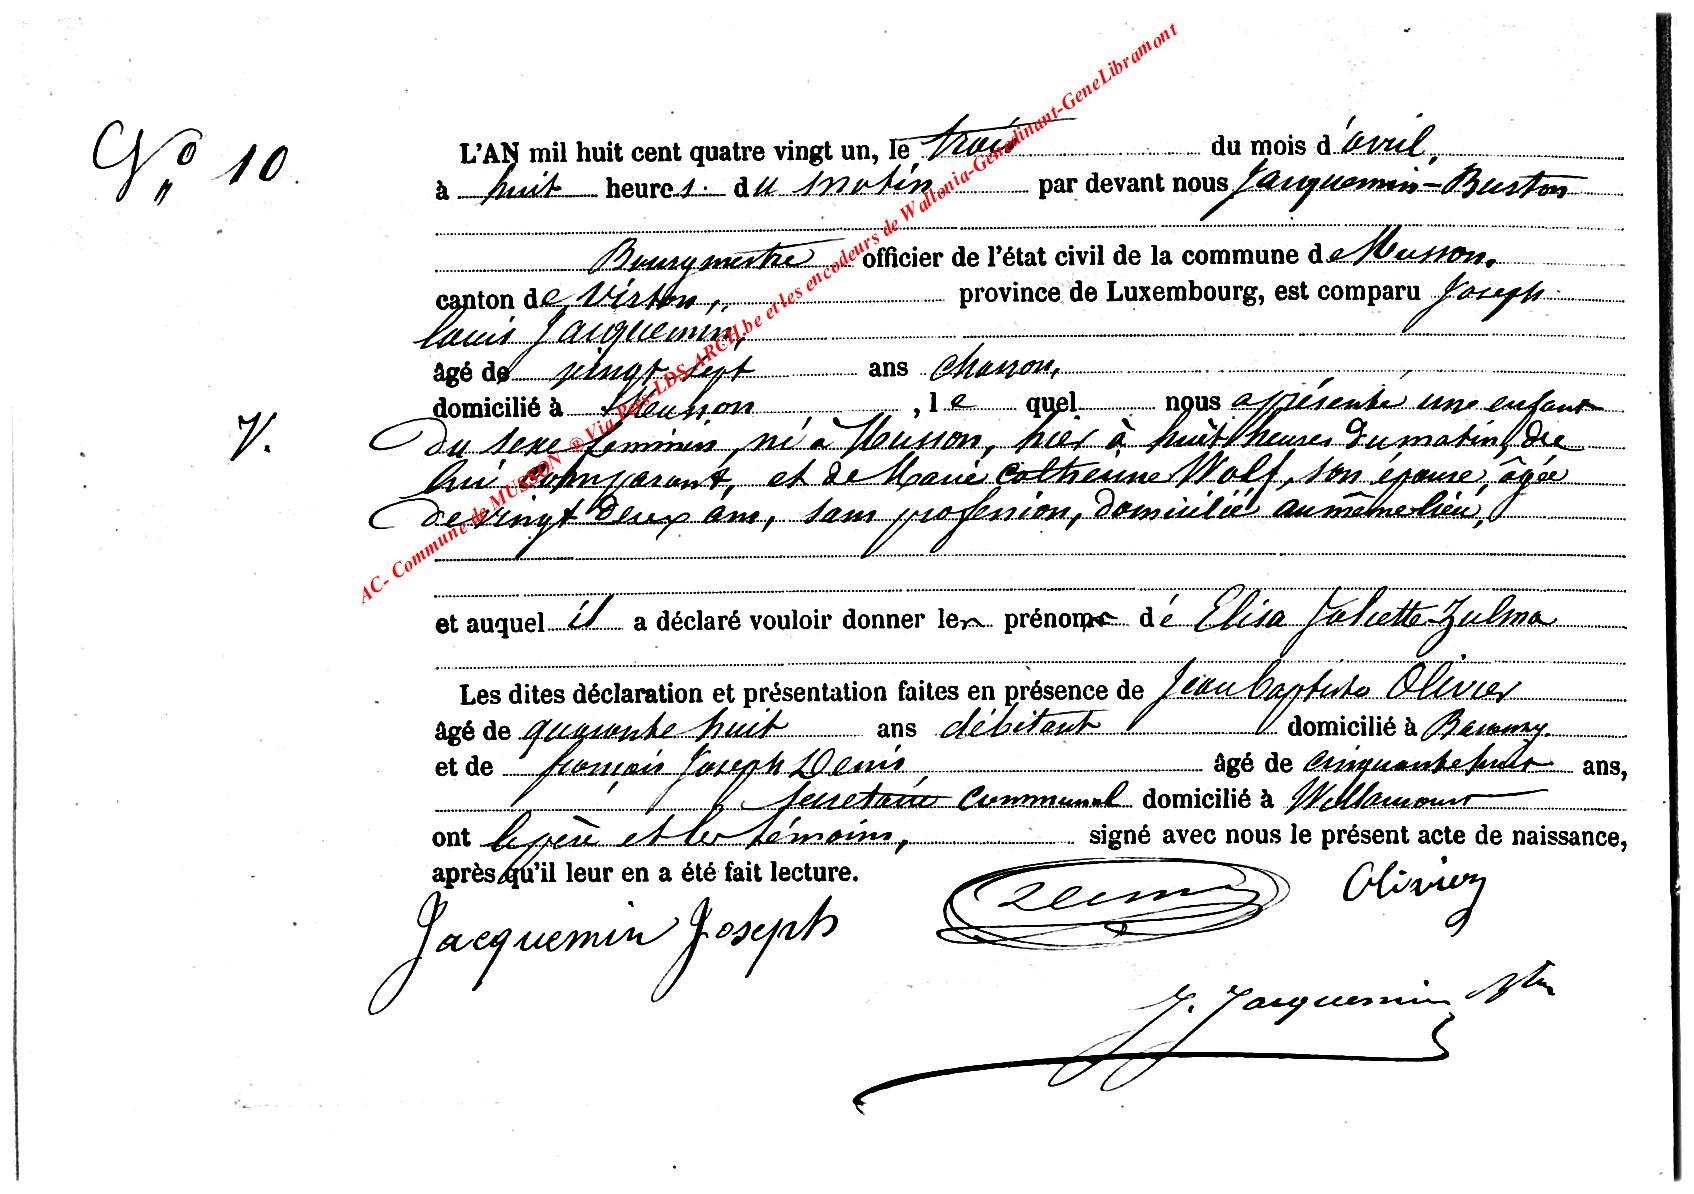 N° 10.
L'AN mil huit cent quatre vingt un, le trois du mois d'avril,
à huit heures. du matin par devant nous Jacquemin-Buston
Bourgmestre officier de l'état civil de la commune de Musson,
canton de Virton, province de Luxembourg, est comparu Joseph
louis Jacquemin,
âgé de vingt sept ans charron,
domicilié à Musson, le quel nous a présenté une enfant
V.
du sexe feminin, né à Musson, hier à huit heures du matin, de
lui comparant, et de Marie Catherine Wolf, son épouse, âgée
de vingt deux ans, sans profession, domicilié au même lieu,
et auquel il a déclaré vouloir donner les prénoms dé Elisa Juliette Zulma
Les dites déclaration et présentation faites en présence de Jean baptiste Olivier
âgé de quarante huit ans débitant domicilié à Baranzy.
et de françois Joseph Denis, âgé de cinquante huit ans,
secretaire communal domicilié à Willancourt
ont le père et les témoins, signé avec nous le présent acte de naissance,
après qu'il leur en a été fait lecture.
Jacquemin Joseph Denis Olivier
J. Jacquemin Btn
AC- Commune de MUSSON ® Via Pers-LDS-ARCH.be et les encodeurs de Wallonia-Genedinant-GeneLibramont